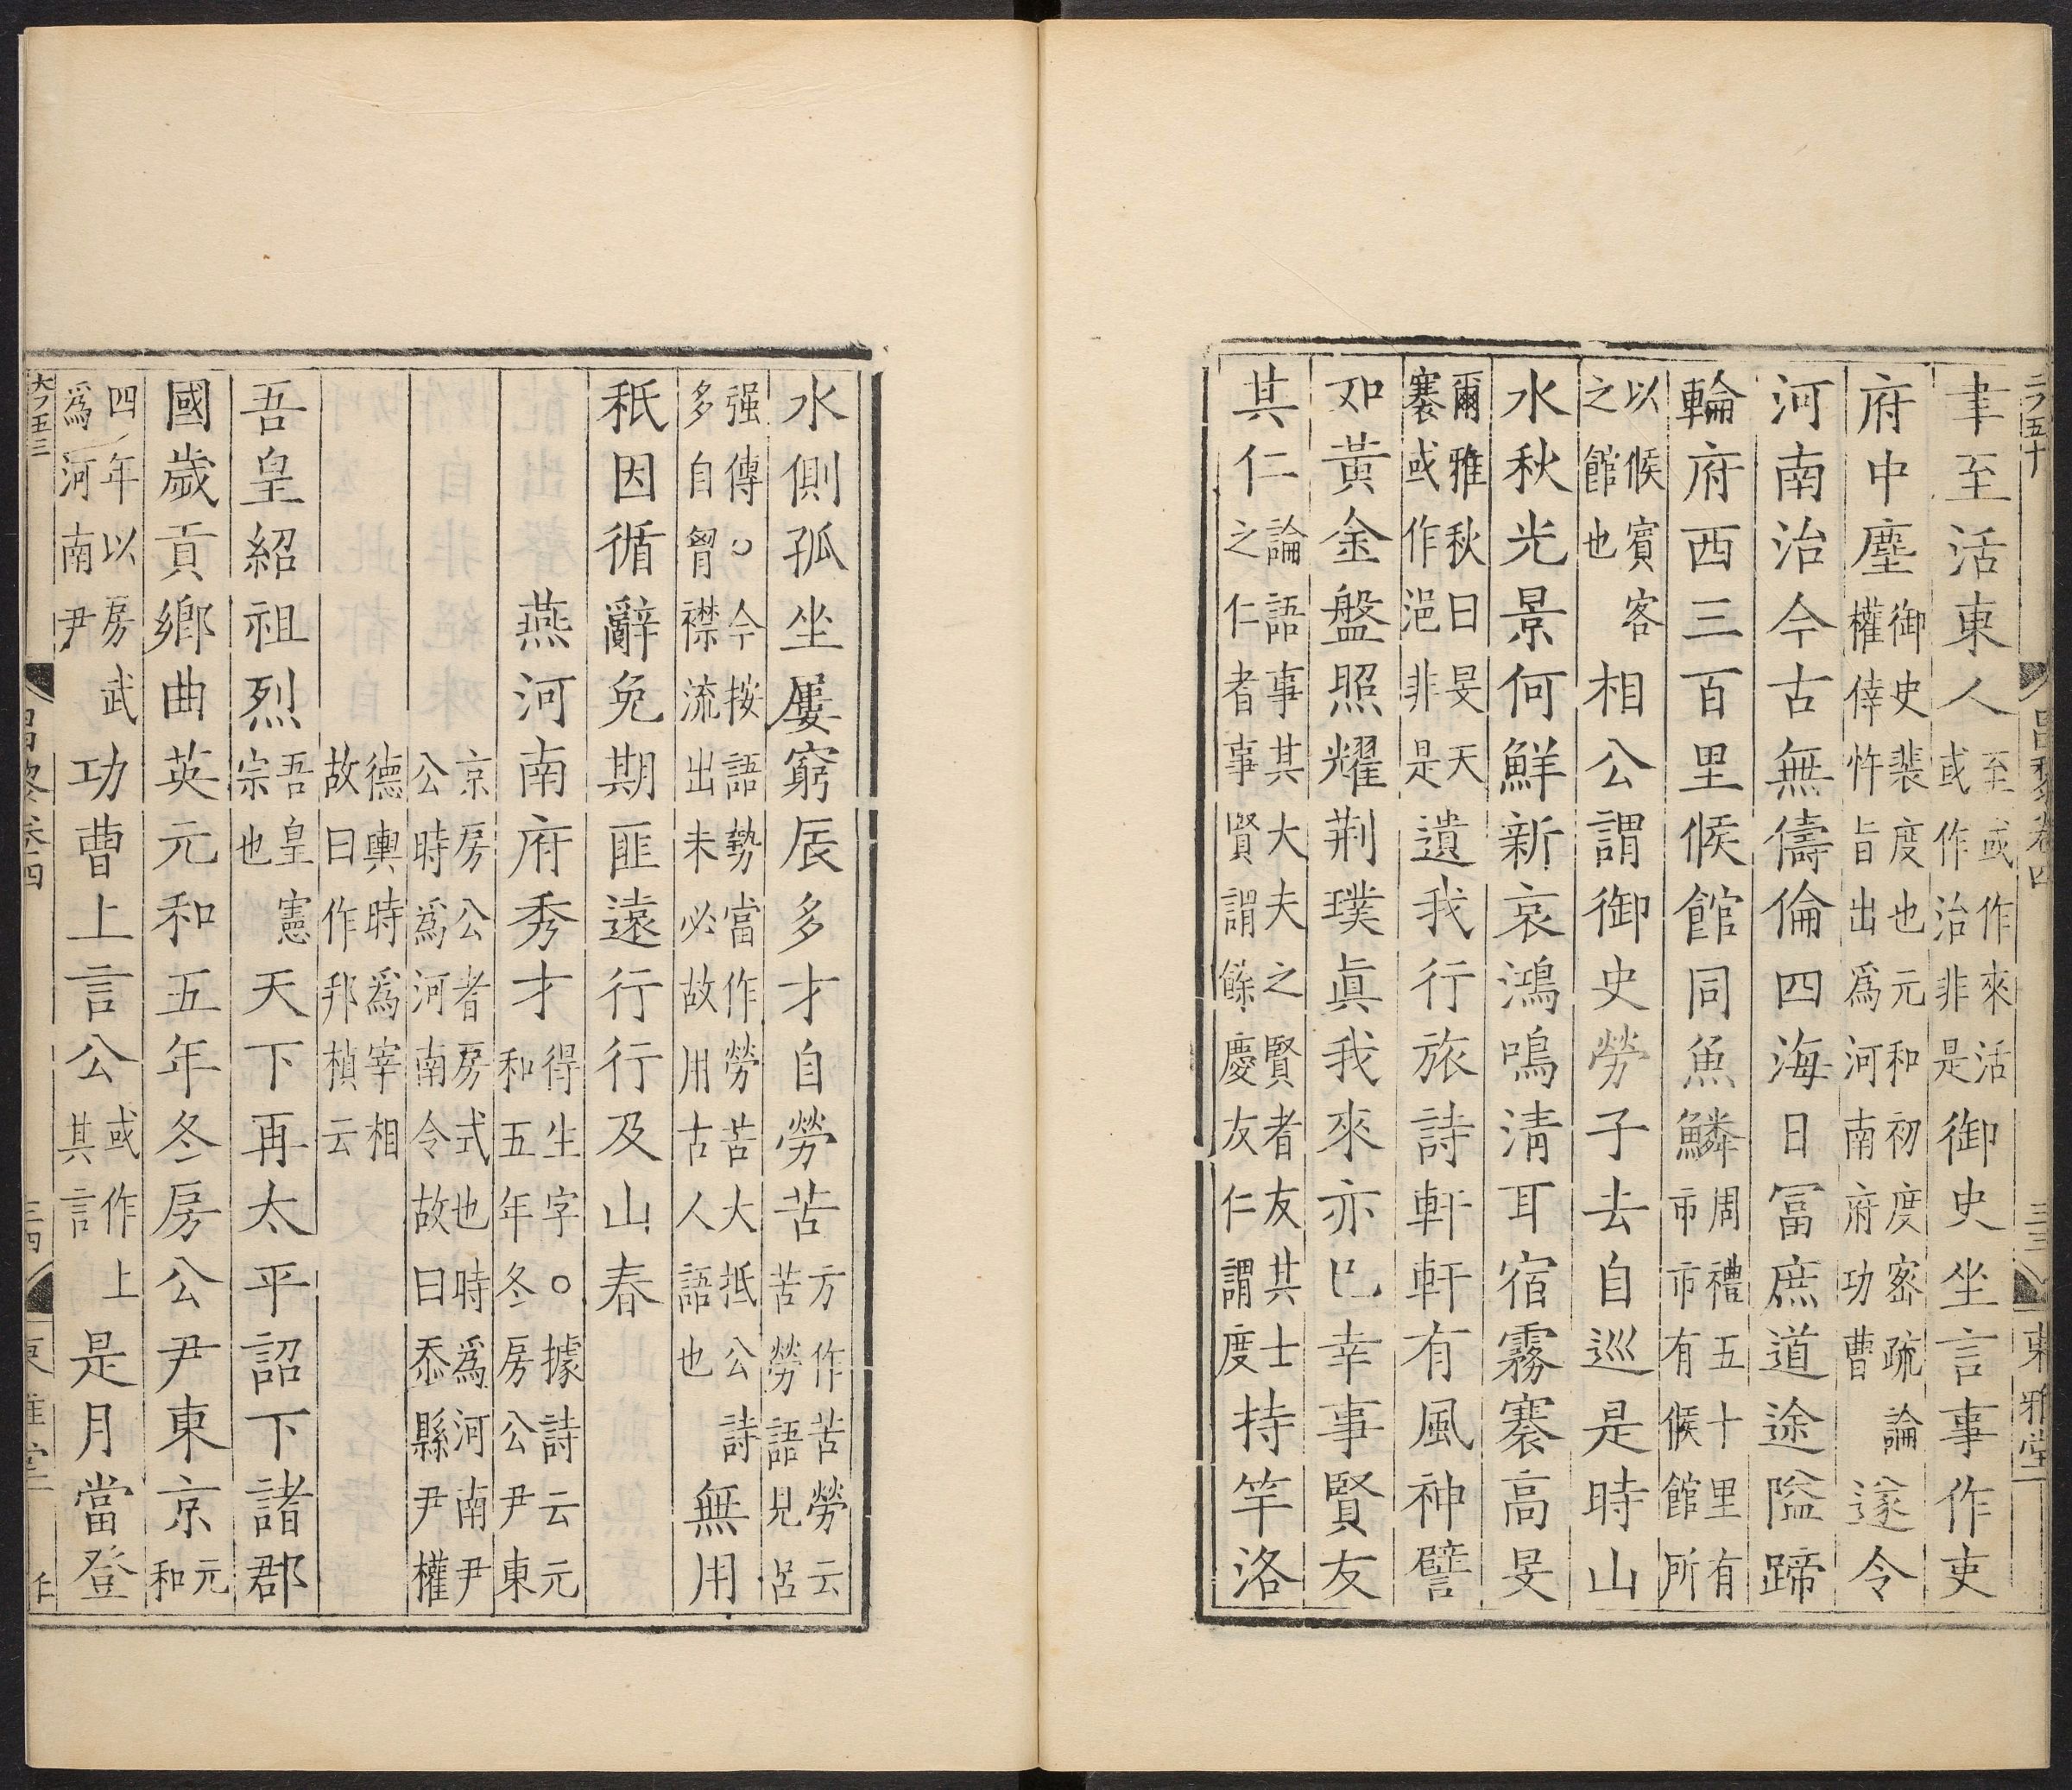 昌黎卷四 三三 東雅堂
聿至活東人至或作來活或作治非是御史坐言事作吏
府中塵御史裴度也元和初度密疏論權倖忤旨出爲河南府功曹遂令
河南治今古無儔倫四海日冨庶道途隘蹄
輪府西三百里候館同魚鱗周禮五十里有市市有候館所
以候賔客之館也相公謂御史勞子去自巡是時山
水秋光景何鮮新哀鴻鳴清耳宿霧褰高旻
爾雅秋曰旻天褰或作浥非是遺我行旅詩軒軒有風神譬
如黃金盤照耀荆璞眞我來亦已幸事賢友
其仁論語事其大夫之賢者友其士之仁者事賢謂餘慶友仁謂度持竿洛
水側孤坐屢窮辰多才自勞苦方作苦勞云苦勞語見呂
强傳○今按語勢當作勞苦大抵公詩多自胷襟流出未必故用古人語也無用
秖因循辭免期匪遠行行及山春
燕河南府秀才得生字○據詩云元和五年冬房公尹東
京房公者房式也時爲河南尹公時爲河南令故曰忝縣尹權
德輿時爲宰相故曰作邦楨云
吾皇紹祖烈吾皇憲宗也天下再太平詔下諸郡
國歲貢鄉曲英元和五年冬房公尹東京元和
四年以房武爲河南尹功曹上言公或作上其言是月當登
昌黎卷四 三四 東雅堂